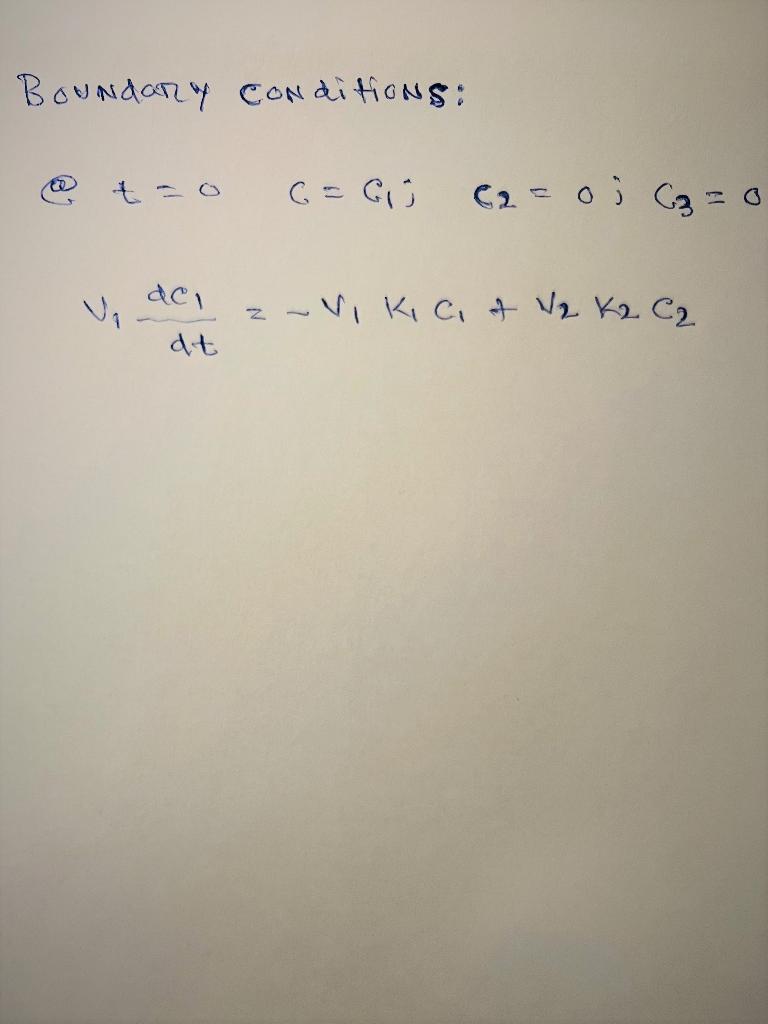 Boundary conditions:
@ t = 0 C = C1; C2 = 0; C3 = 0
V1 dC1/dt = - V1 K1 C1 + V2 K2 C2